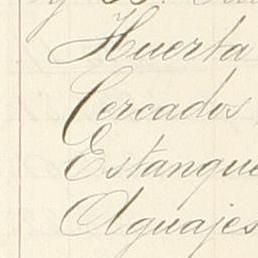 Huerta
Cercados
Estanque
Aguajes